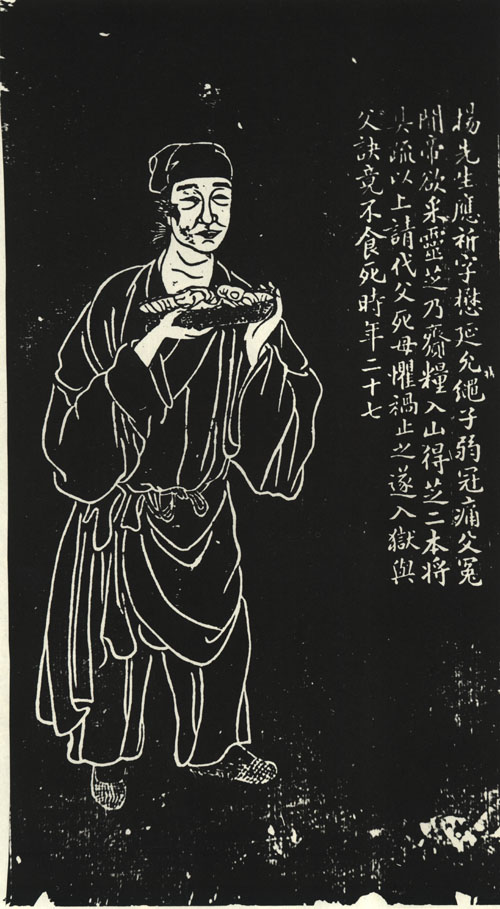 楊先生應祈字懋延允繩子弱冠痛父冤
聞帝欲采靈芝乃齎糧入山得芝二本將
具疏以上請代父死母懼禍止之遂入獄與
父訣竟不食死時年二十七